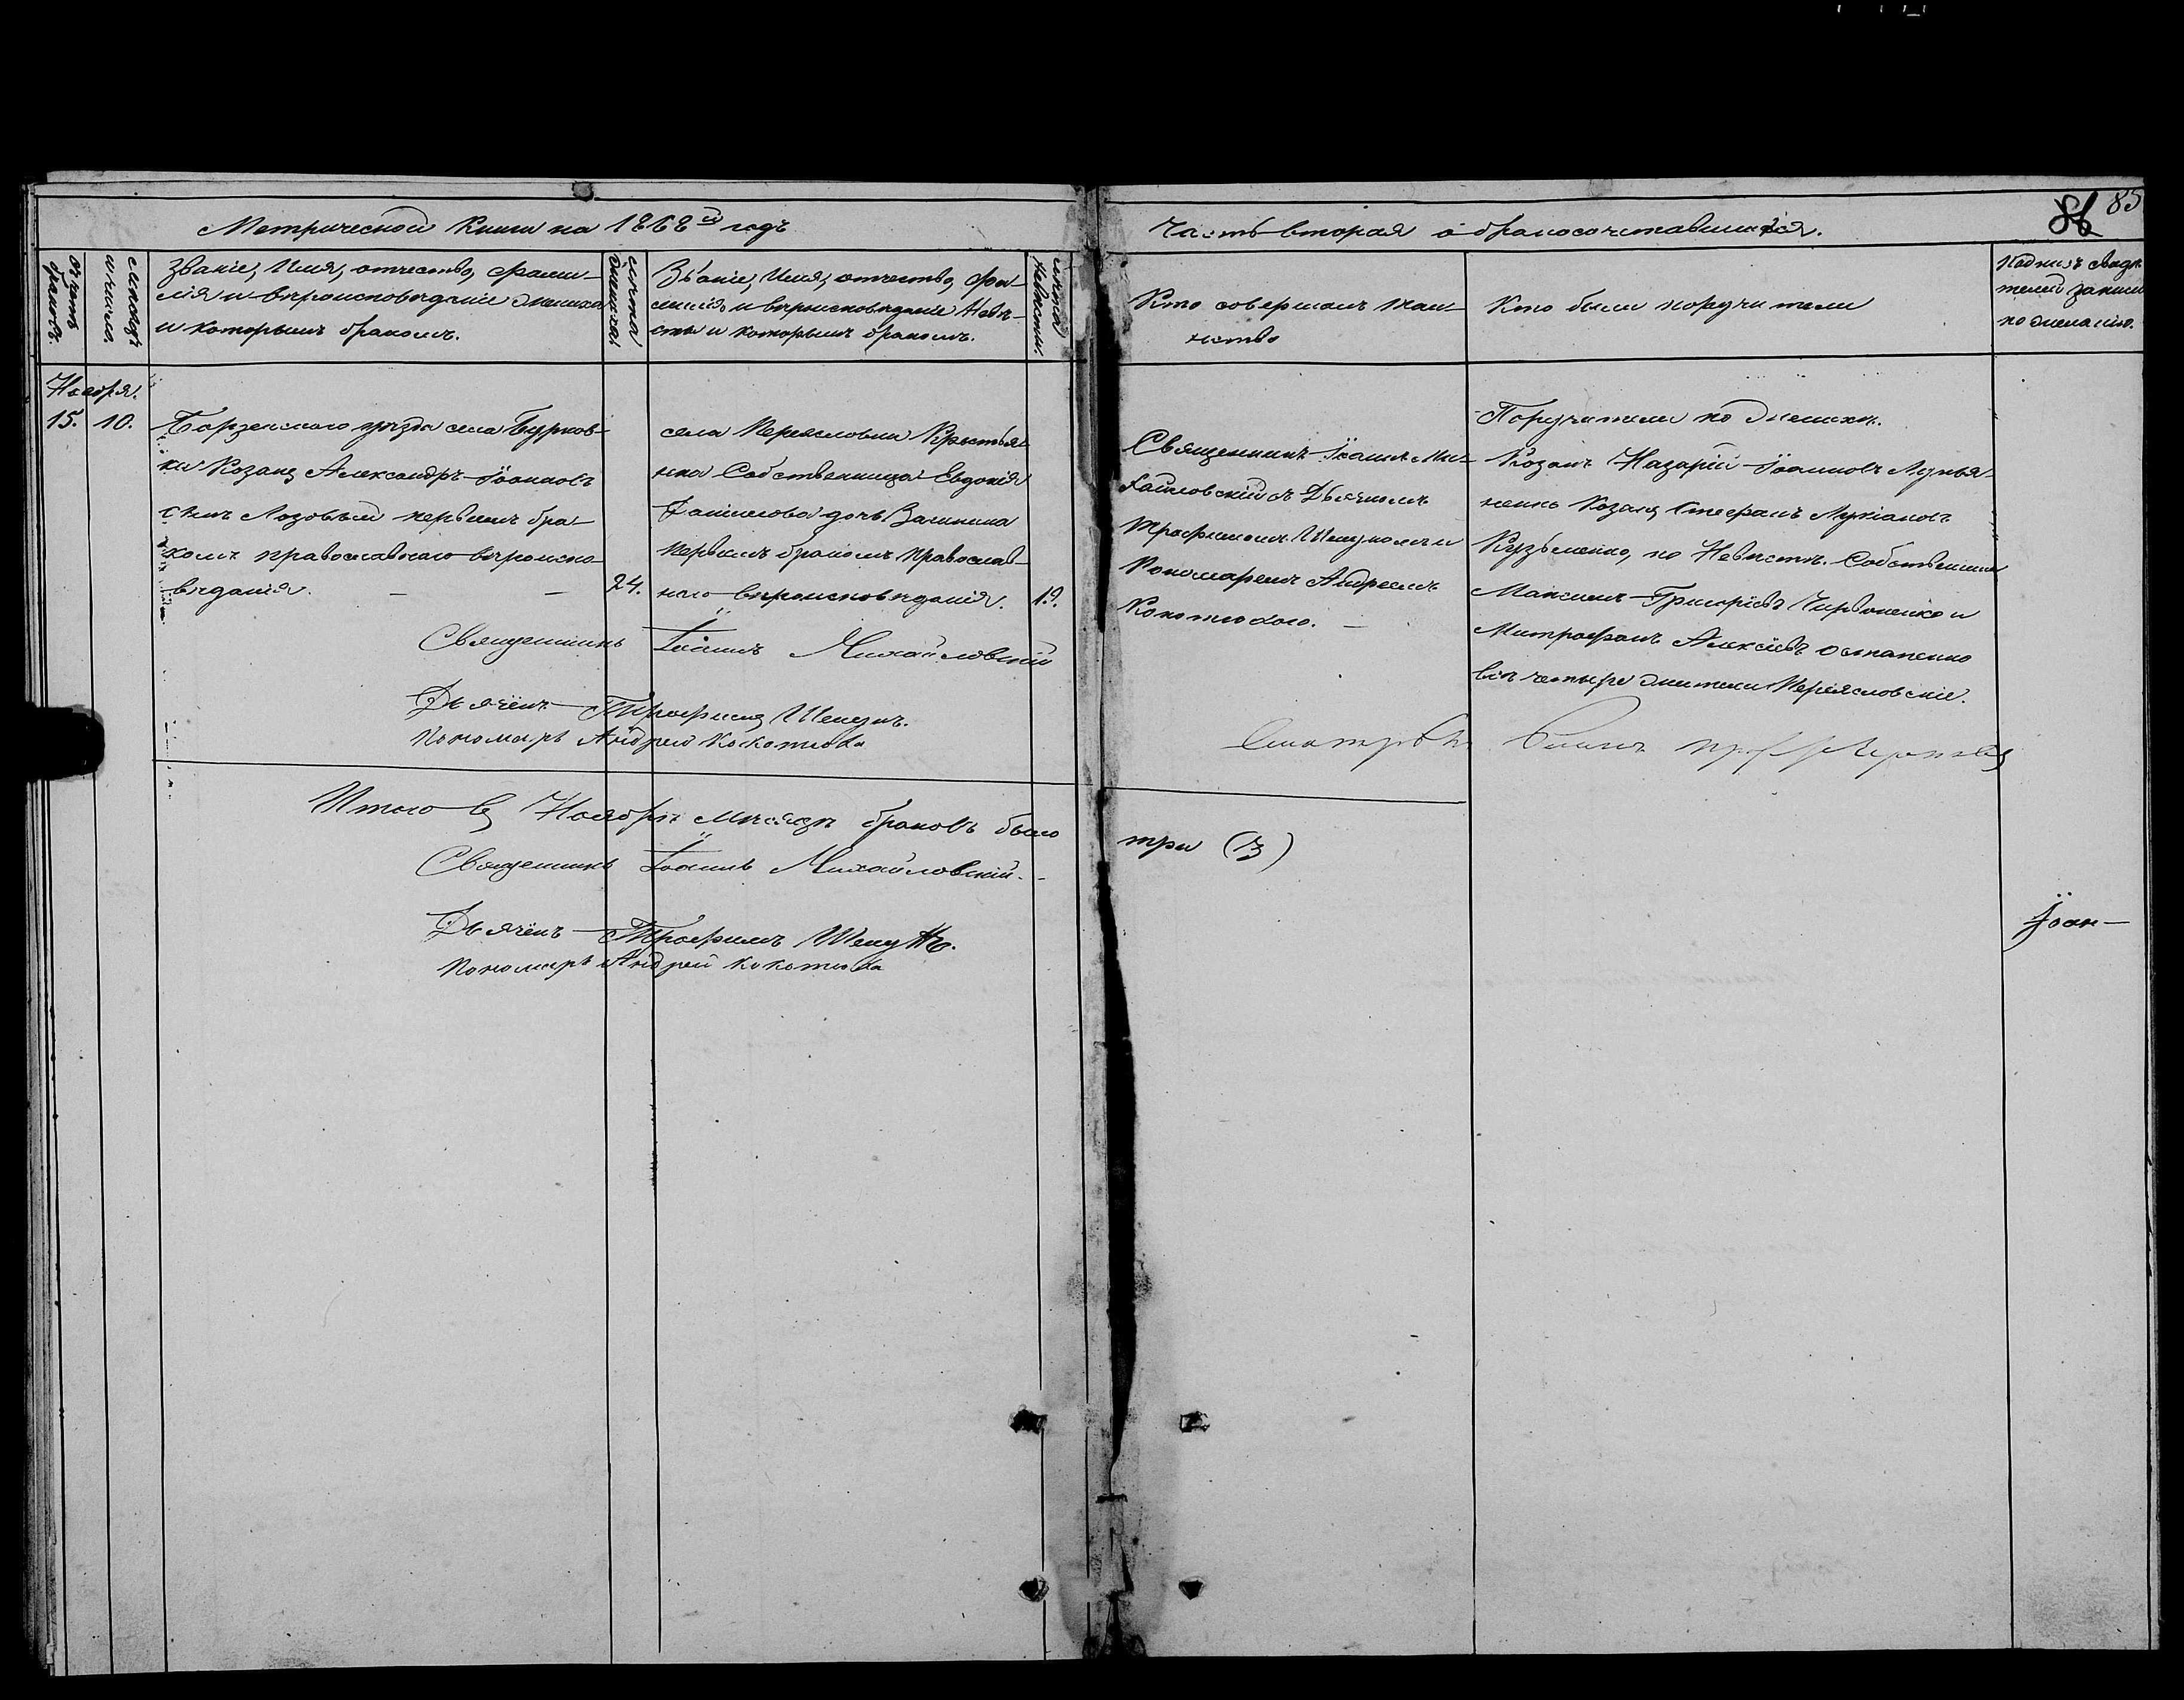 Метрической Книги на 1868й годъ
Часть вторая о бракосочетавшихся.
86 85
Счетъ браковъ.
Мѣсяцъ и число.
Званіе, Имя, отчество, фами-
лія и вѣроисповѣданіе жениха
и которымъ бракомъ.
Лѣта жениха
Званіе, Имя, отчество, фа-
милія и вѣроисповѣданіе Невѣ-
сты и которымъ бракомъ.
Лѣта Невѣсты.
Кто совершалъ таи-
нство
Кто были поручители
Подпись свидѣ-
телей записи
по желанію.
Ноября.
15. 10.
Борзенскаго уѣзда села Бурков-
ки Козакъ Александръ Іоанновъ
сынъ Лозовый первымъ бра-
комъ православнаго вѣроиспо-
вѣданія. — — 24.
села Переясловки Крестья-
нка Собственница Евдокія
Даниилова дочь
первымъ бракомъ православ-
наго вѣроисповѣданія. 19.
Священникъ Іоаннъ Ми-
хайловскій съ Дьячкомъ
Трофимомъ Шепукомъ и
Пономаремъ Андреемъ
Кокотюхою. —
Поручители по женихѣ.
Козакъ Назарій Іоанновъ Лукья-
ненко Козакъ Стефанъ Лукіановъ
Кузьменко, по Невѣстѣ. Собственники
Максимъ Григорьевъ Чирвоненко и
Митрофанъ Алексѣевъ Остапенко
всѣ четыре жители Переясловскіе.
Священникъ Іоаннъ Михайловскій
Дьячекъ Трофимъ Шепукъ.
Пономарь Андрей Кокотюха
Итого въ Ноябрѣ Мѣсяцѣ браковъ было
три (3)
Священникъ Іоаннъ Михайловскій.
Дьячекъ Трофимъ Шепукъ.
Пономарь Андрей Кокотюха
Іоан—